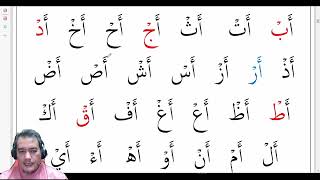 أَبْ أَتْ أَثْ أَجْ أَحْ أَخْ أَدْ
أَذْ أَرْ أَزْ أَسْ أَشْ أَصْ أَضْ
أَطْ أَظْ أَعْ أَغْ أَفْ أَقْ أَكْ
أَلْ أَمْ أَنْ أَوْ أَهْ أَءْ أَيْ